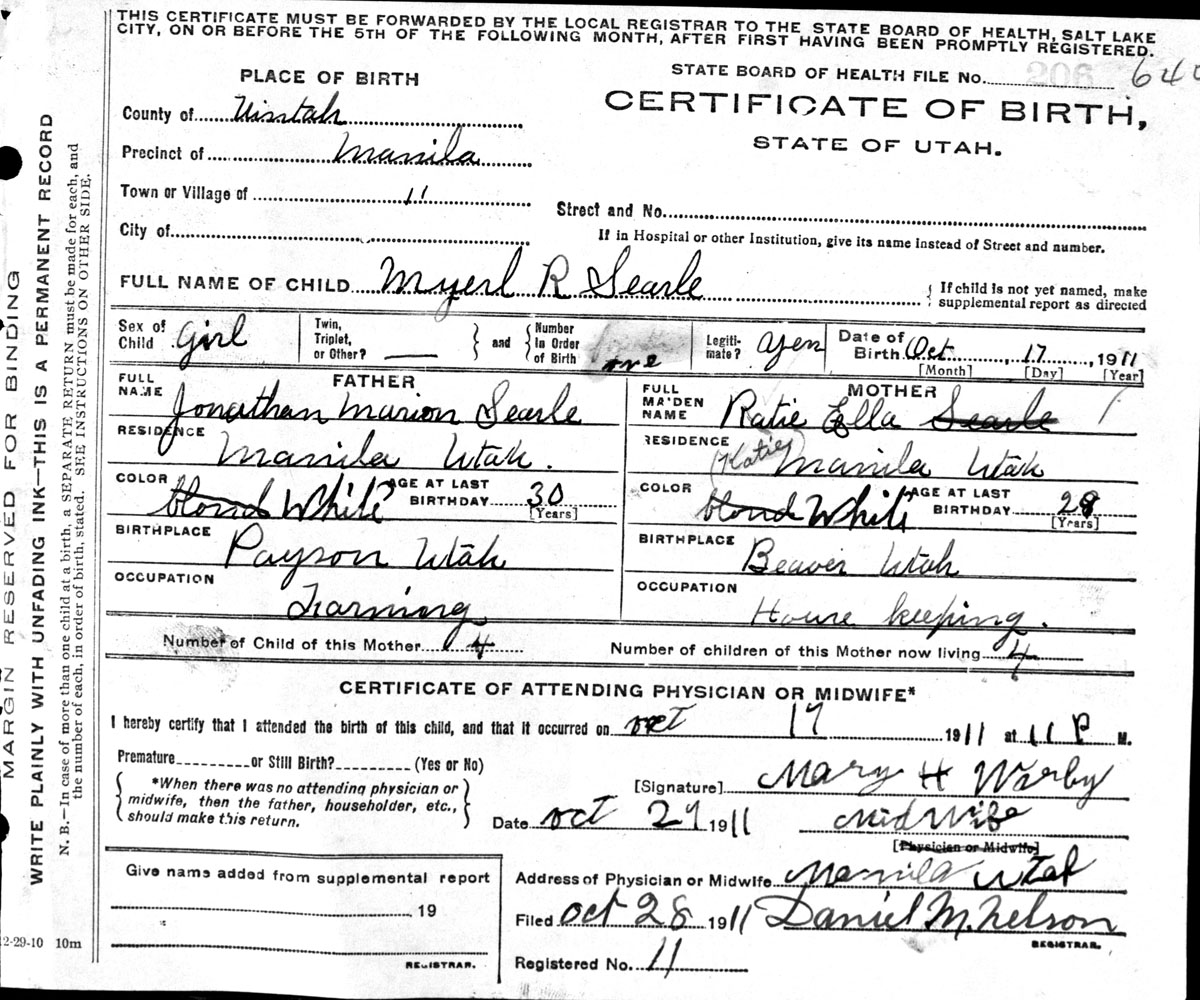 THIS CERTIFICATE MUST BE FORWARDED BY THE LOCAL REGISTRAR TO THE STATE BOARD OF HEALTH, SALT LAKE
CITY, ON OR BEFORE THE 5TH OF THE FOLLOWING MONTH, AFTER FIRST HAVING BEEN PROMPTLY REGISTERED.
MARGIN RESERVED FOR BINDING
WRITE PLAINLY WITH UNFADING INK—THIS IS A PERMANENT RECORD
N. B.—In case of more than one child at a birth, a SEPARATE RETURN must be made for each, and
the number of each, in order of birth, stated. SEE INSTRUCTIONS ON OTHER SIDE.
PLACE OF BIRTH
STATE BOARD OF HEALTH FILE No. 206 640
County of Uintah
CERTIFICATE OF BIRTH,
STATE OF UTAH.
Precinct of Manila
Town or Village of 11
Street and No.
City of
If in Hospital or other Institution, give its name instead of Street and number.
FULL NAME OF CHILD Myerl R Searle
If child is not yet named, make
supplemental report as directed
Sex of Child Girl
Twin, Triplet, or Other?
and
Number In Order of Birth one
Legiti- mate?
Date of Birth Oct 17 1911
[Month] [Day] [Year]
FATHER
FULL NAME Jonathan Marion Searle
RESIDENCE Manila Utah.
COLOR blond White
AGE AT LAST BIRTHDAY 30
[Years]
BIRTHPLACE Payson Utah
OCCUPATION Farming
MOTHER
FULL MAIDEN NAME Ratie Ella Searle
RESIDENCE (Katie) Manila Utah
COLOR blond White
AGE AT LAST BIRTHDAY 28
[Years]
BIRTHPLACE Beaver Utah
OCCUPATION House keeping.
Number of Child of this Mother 4
Number of children of this Mother now living 4
CERTIFICATE OF ATTENDING PHYSICIAN OR MIDWIFE*
I hereby certify that I attended the birth of this child, and that it occurred on oct 17 1911 at 11 P M.
Premature or Still Birth? (Yes or No)
*When there was no attending physician or
midwife, then the father, householder, etc.,
should make this return.
[Signature] Mary H Warby
Date oct 27 1911
Midwife
[Physician or Midwife]
Give name added from supplemental report
19
REGISTRAR.
2-29-10 10m
Address of Physician or Midwife Manila Utah
Filed oct 28 1911 Daniel M. Nelson
REGISTRAR.
Registered No. 11